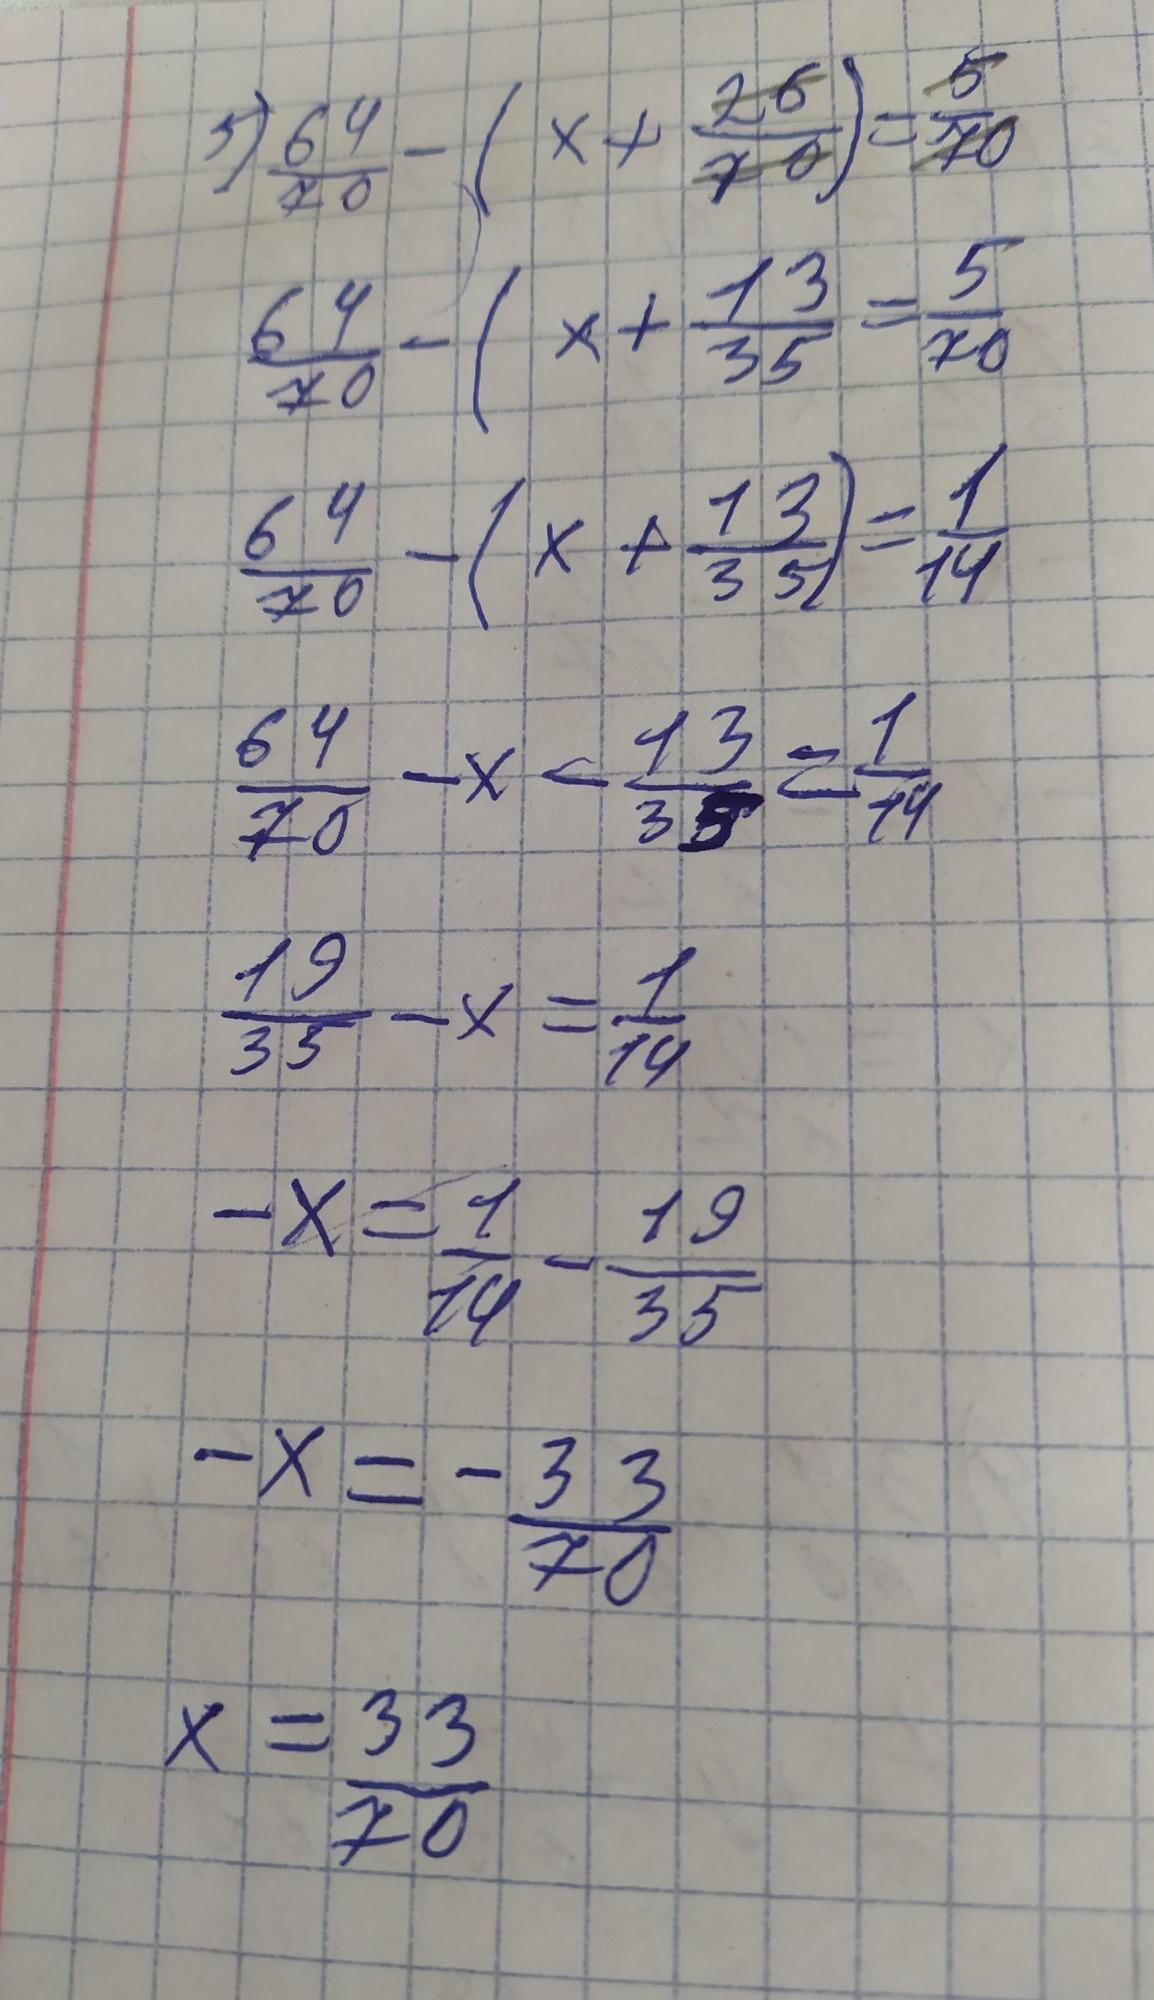 5) 64/70 - (x + 26/70) = 5/70
64/70 - (x + 13/35 = 5/70
64/70 - (x + 13/35) = 1/14
64/70 - x - 13/35 = 1/14
19/35 - x = 1/14
-x = 1/14 - 19/35
-x = - 33/70
x = 33/70